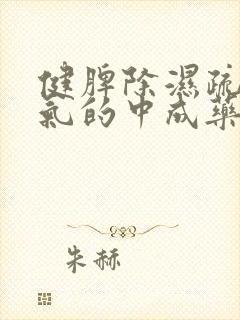 健脾除濕疏
氣的中成藥
朱赫